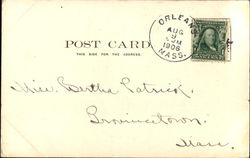 POST CARD
THIS SIDE FOR THE ADDRESS.
ORLEANS
AUG
9
PM
1906
MASS.
Miss. Bertha Patrick.
Provincetown.
Mass.